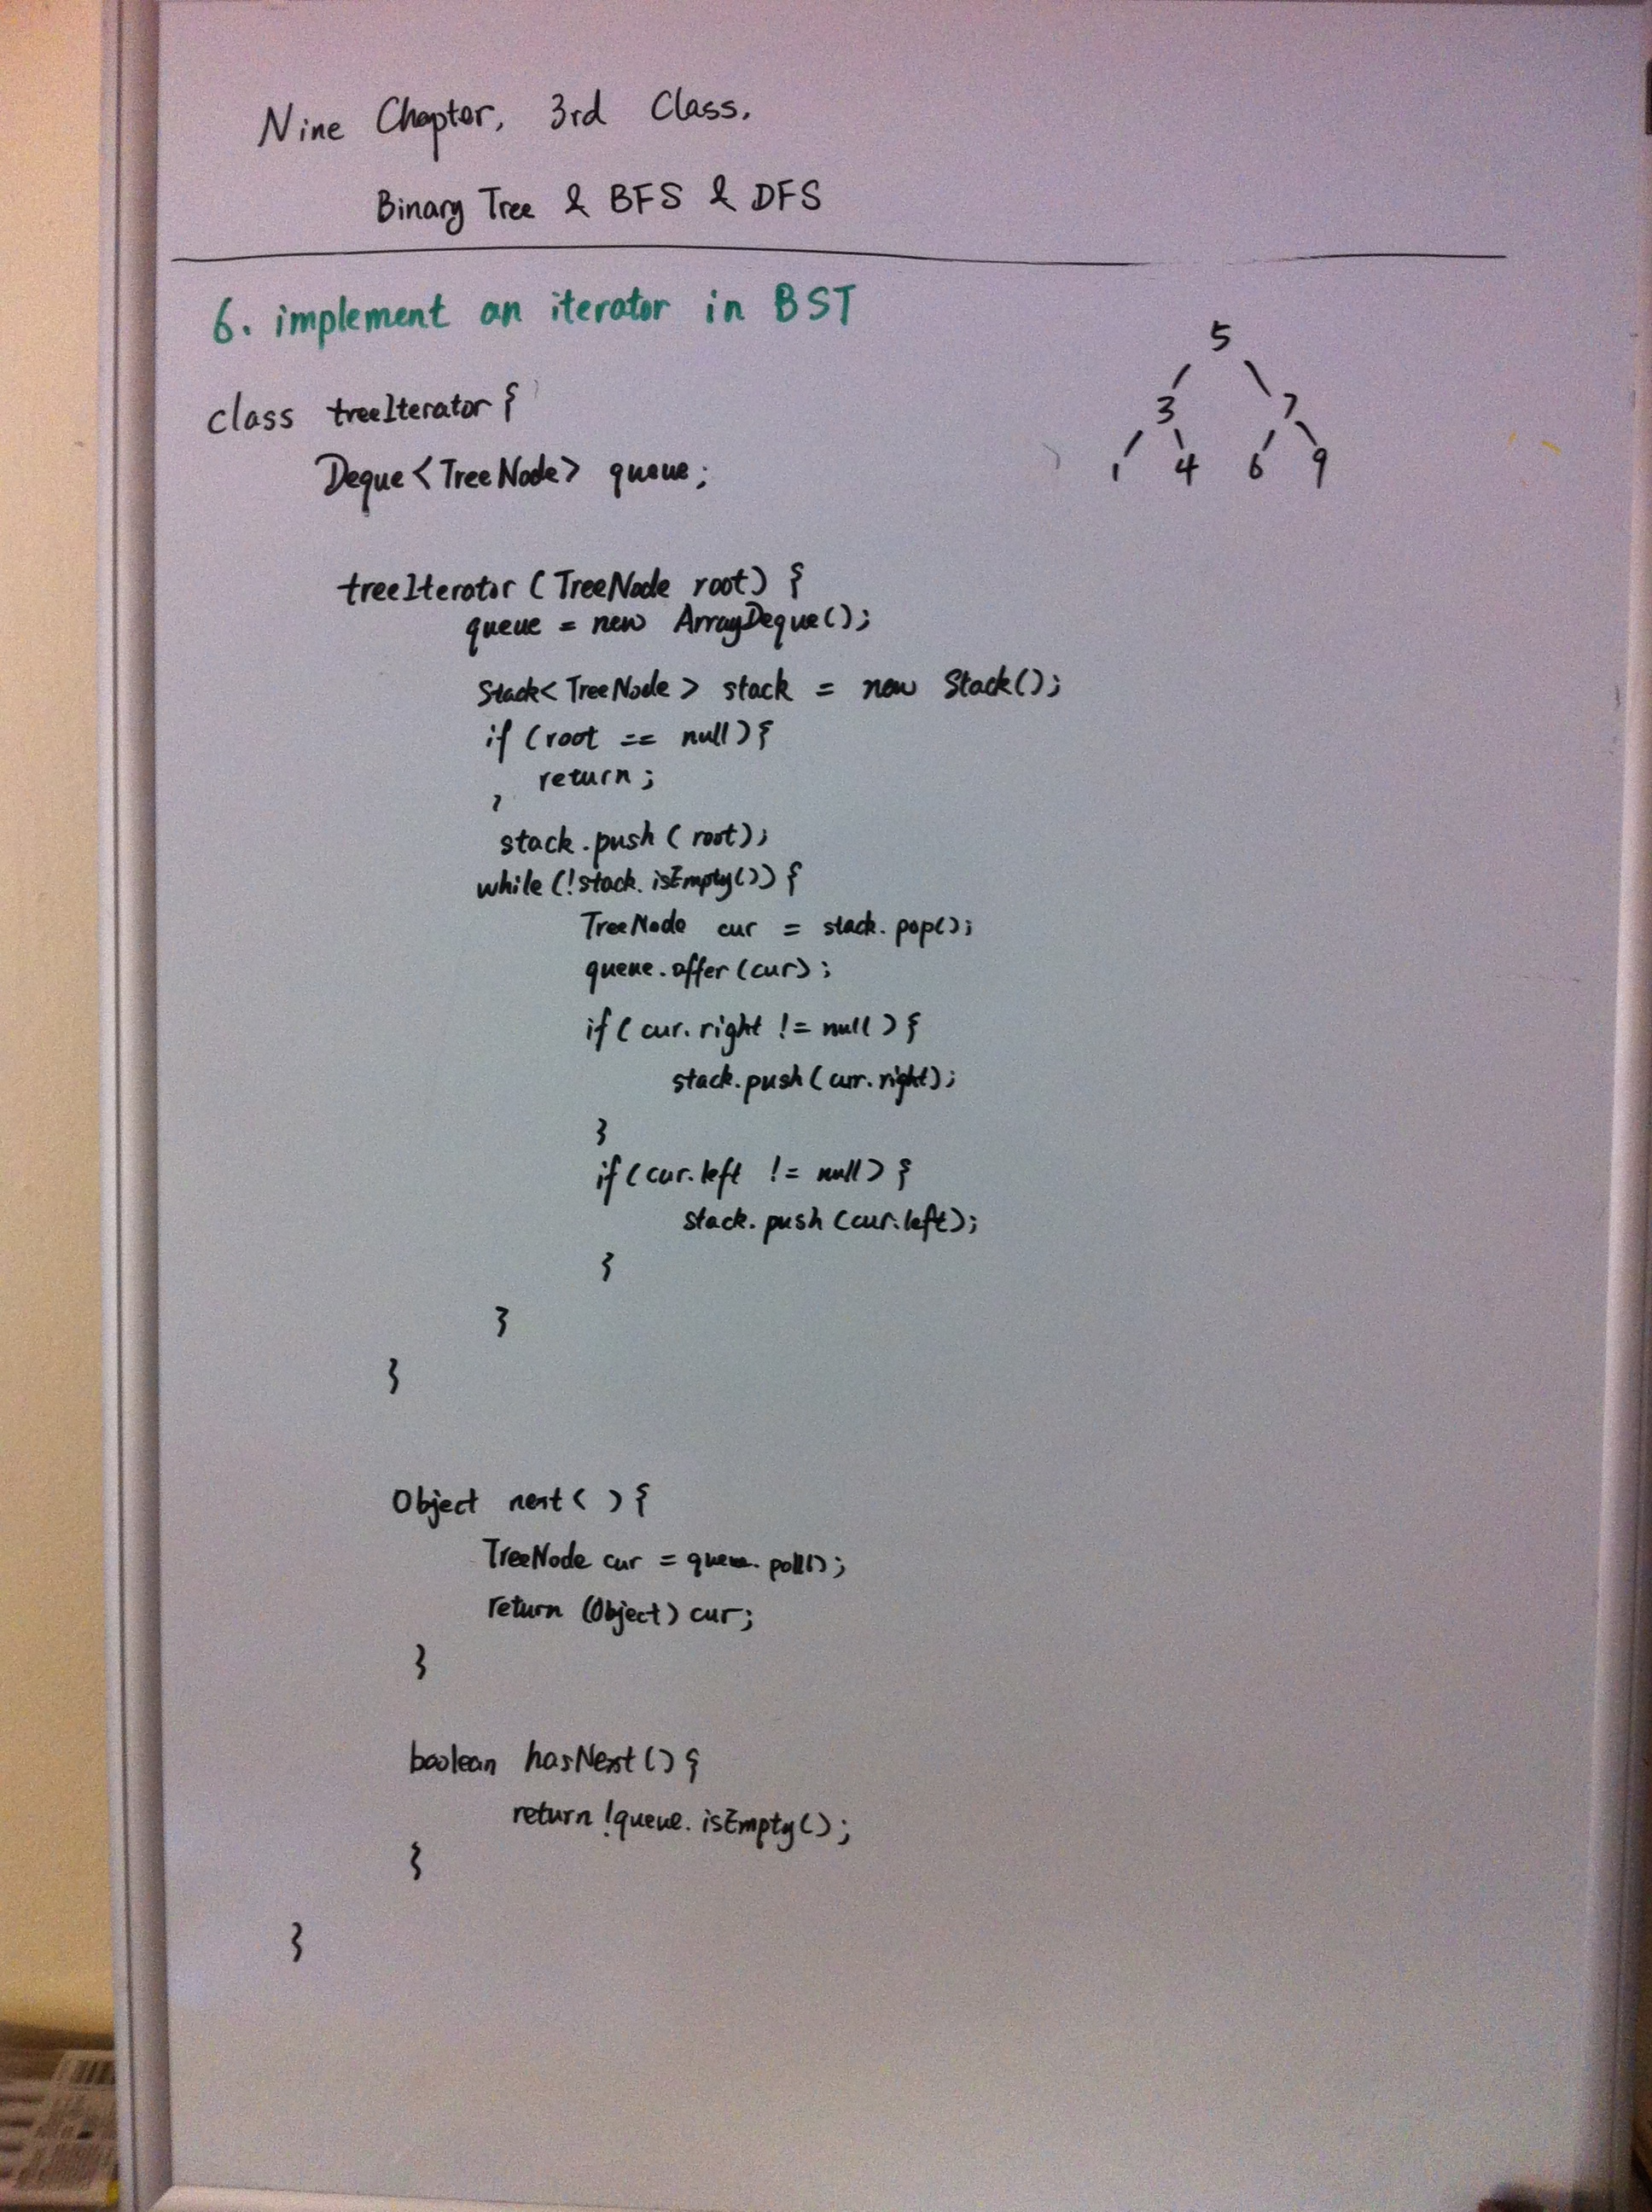 Nine Chapter, 3rd Class.
Binary Tree & BFS & DFS
6. implement an iterator in BST
5
3 7
1 4 6 9
class treeIterator {
Deque<TreeNode> queue;
treeIterator (TreeNode root) {
queue = new ArrayDeque();
Stack<TreeNode> stack = new Stack();
if (root == null) {
return;
}
stack.push(root);
while (!stack.isEmpty()) {
TreeNode cur = stack.pop();
queue.offer(cur);
if (cur.right != null) {
stack.push(cur.right);
}
if (cur.left != null) {
stack.push(cur.left);
}
}
}
Object next() {
TreeNode cur = queue.poll();
return (Object) cur;
}
boolean hasNext() {
return !queue.isEmpty();
}
}